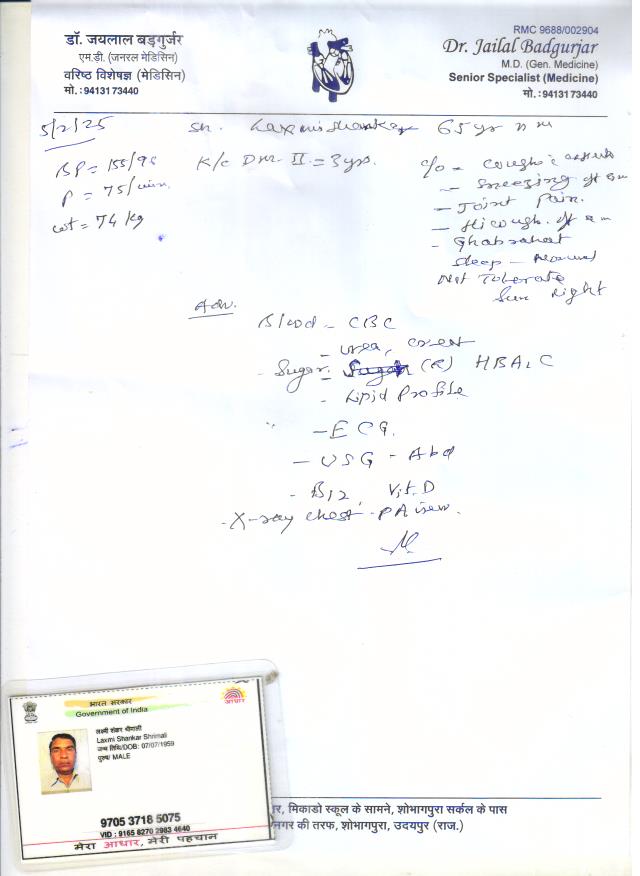 RMC 9688/002904
डॉ. जयलाल बड़गुर्जर
Dr. Jailal Badgurjar
एम.डी. (जनरल मेडिसिन)
M.D. (Gen. Medicine)
वरिष्ठ विशेषज्ञ (मेडिसिन)
Senior Specialist (Medicine)
मो. : 94131 73440
मो. : 94131 73440
5/2/25
Laxmishanker 65 yr
BP = 155/
P = 75/min.
wt = 74 kg
K/c DM II = 3 yrs.
c/o - cough
- Sneezing
- Joint Pain.
- Hicough.
- Ghabrahat
Sleep - Normal
Not Tolerate
Sun light
Adv.
Blood - CBC
- urea, creat
- Sugar (R) HBA1C
- Lipid Profile
- ECG.
- USG - Abd
- B12, Vit. D
- X-ray chest - PA view.
भारत सरकार
Government of India
आधार
लक्ष्मी शंकर श्रीमाली
Laxmi Shankar Shrimali
जन्म तिथि/DOB: 07/07/1959
पुरुष/ MALE
9705 3718 5075
VID : 9165 8270 2983 4640
मेरा आधार, मेरी पहचान
मिकाडो स्कूल के सामने, शोभागपुरा सर्कल के पास
नगर की तरफ, शोभागपुरा, उदयपुर (राज.)